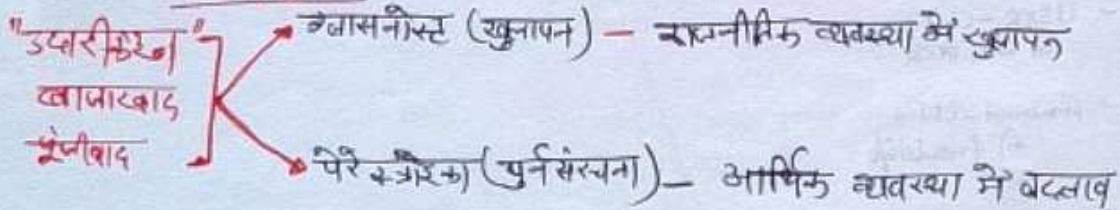 "उदारीकरण"
बाजारवाद
पूंजीवाद
ग्लासनोस्ट (खुलापन) — राजनीतिक व्यवस्था में खुलापन
पेरेस्त्रोइका (पुर्नसंरचना) — आर्थिक व्यवस्था में बदलाव